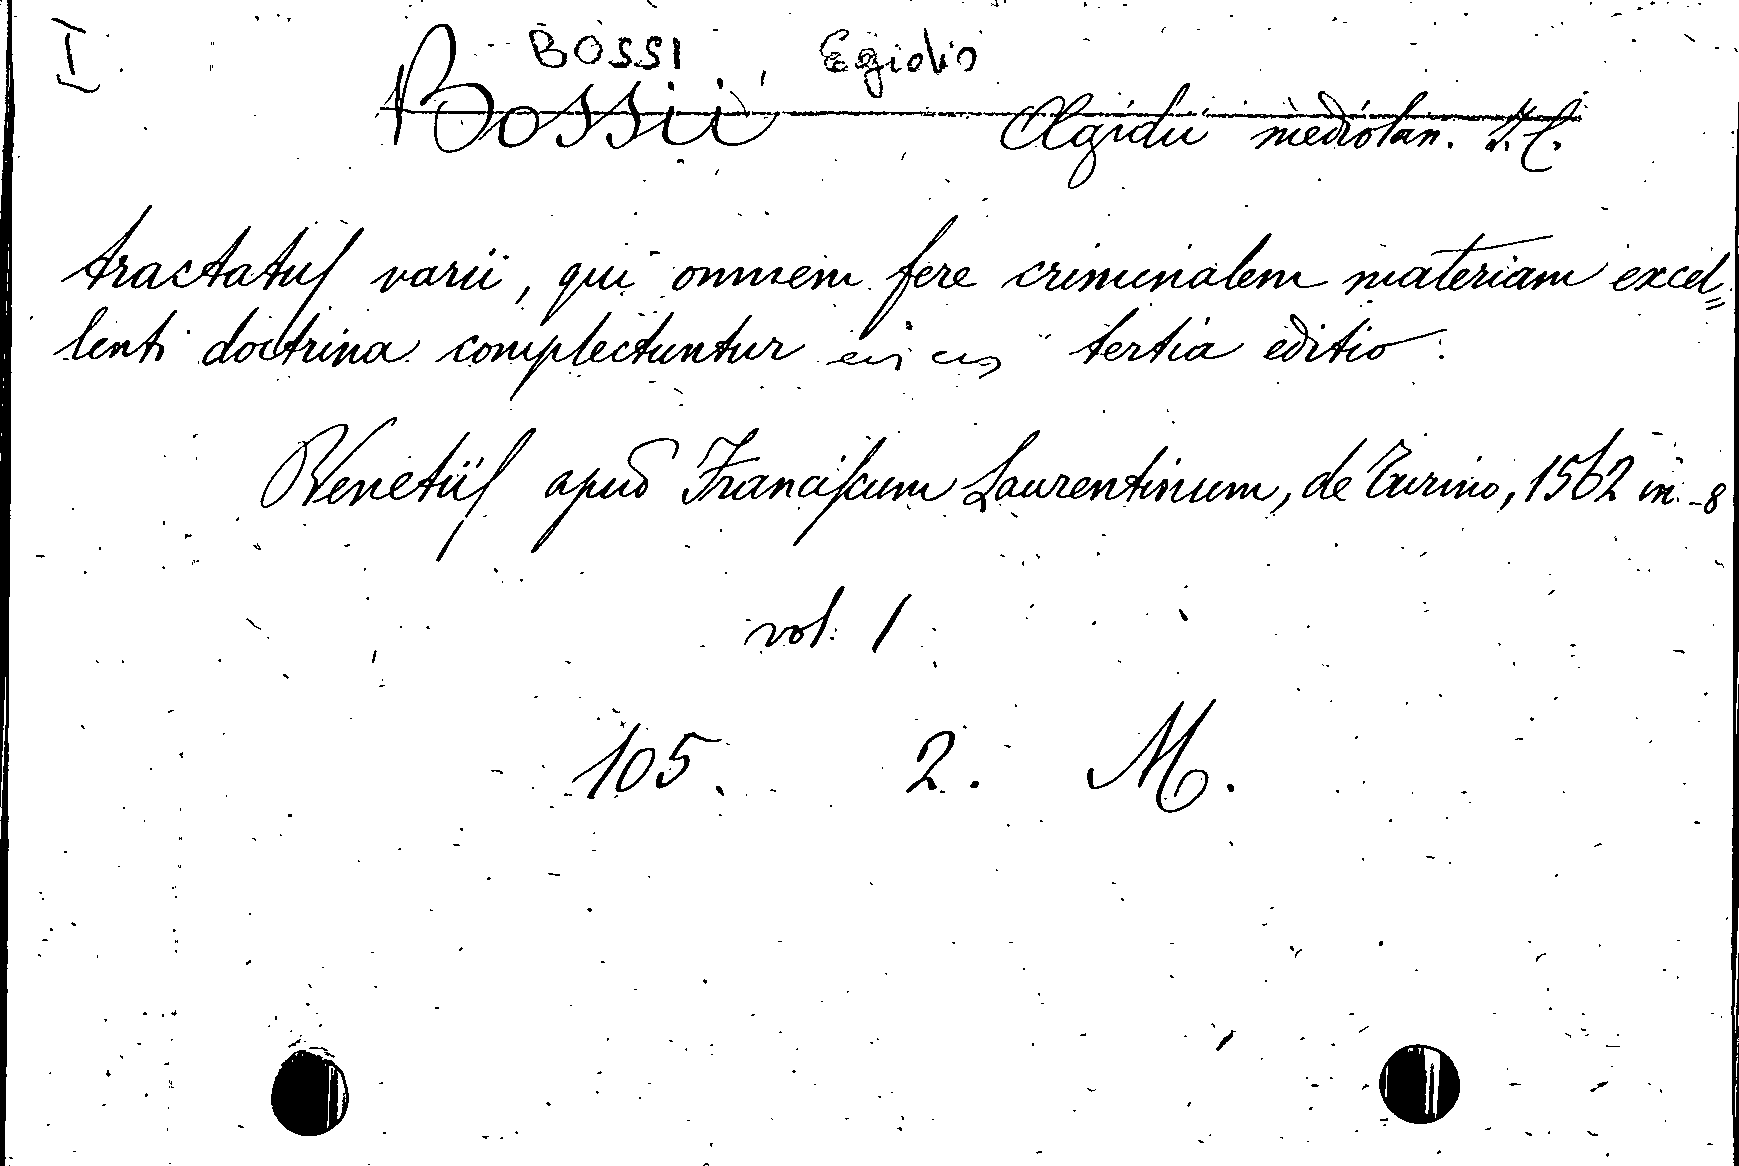 I
BOSSI, Egidio
Bossii Ægidii mediolan. I.C.
tractatus varii, qui omnem fere criminalem materiam excel=
lenti doctrina complectuntur tertia editio.
Venetiis apud Franciscum Laurentinum, de Turino, 1562 in-8
vol. 1
105. 2. M.